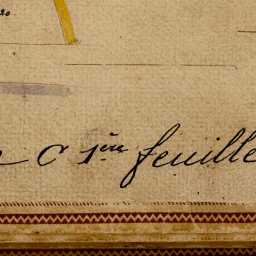 C 1ère feuille